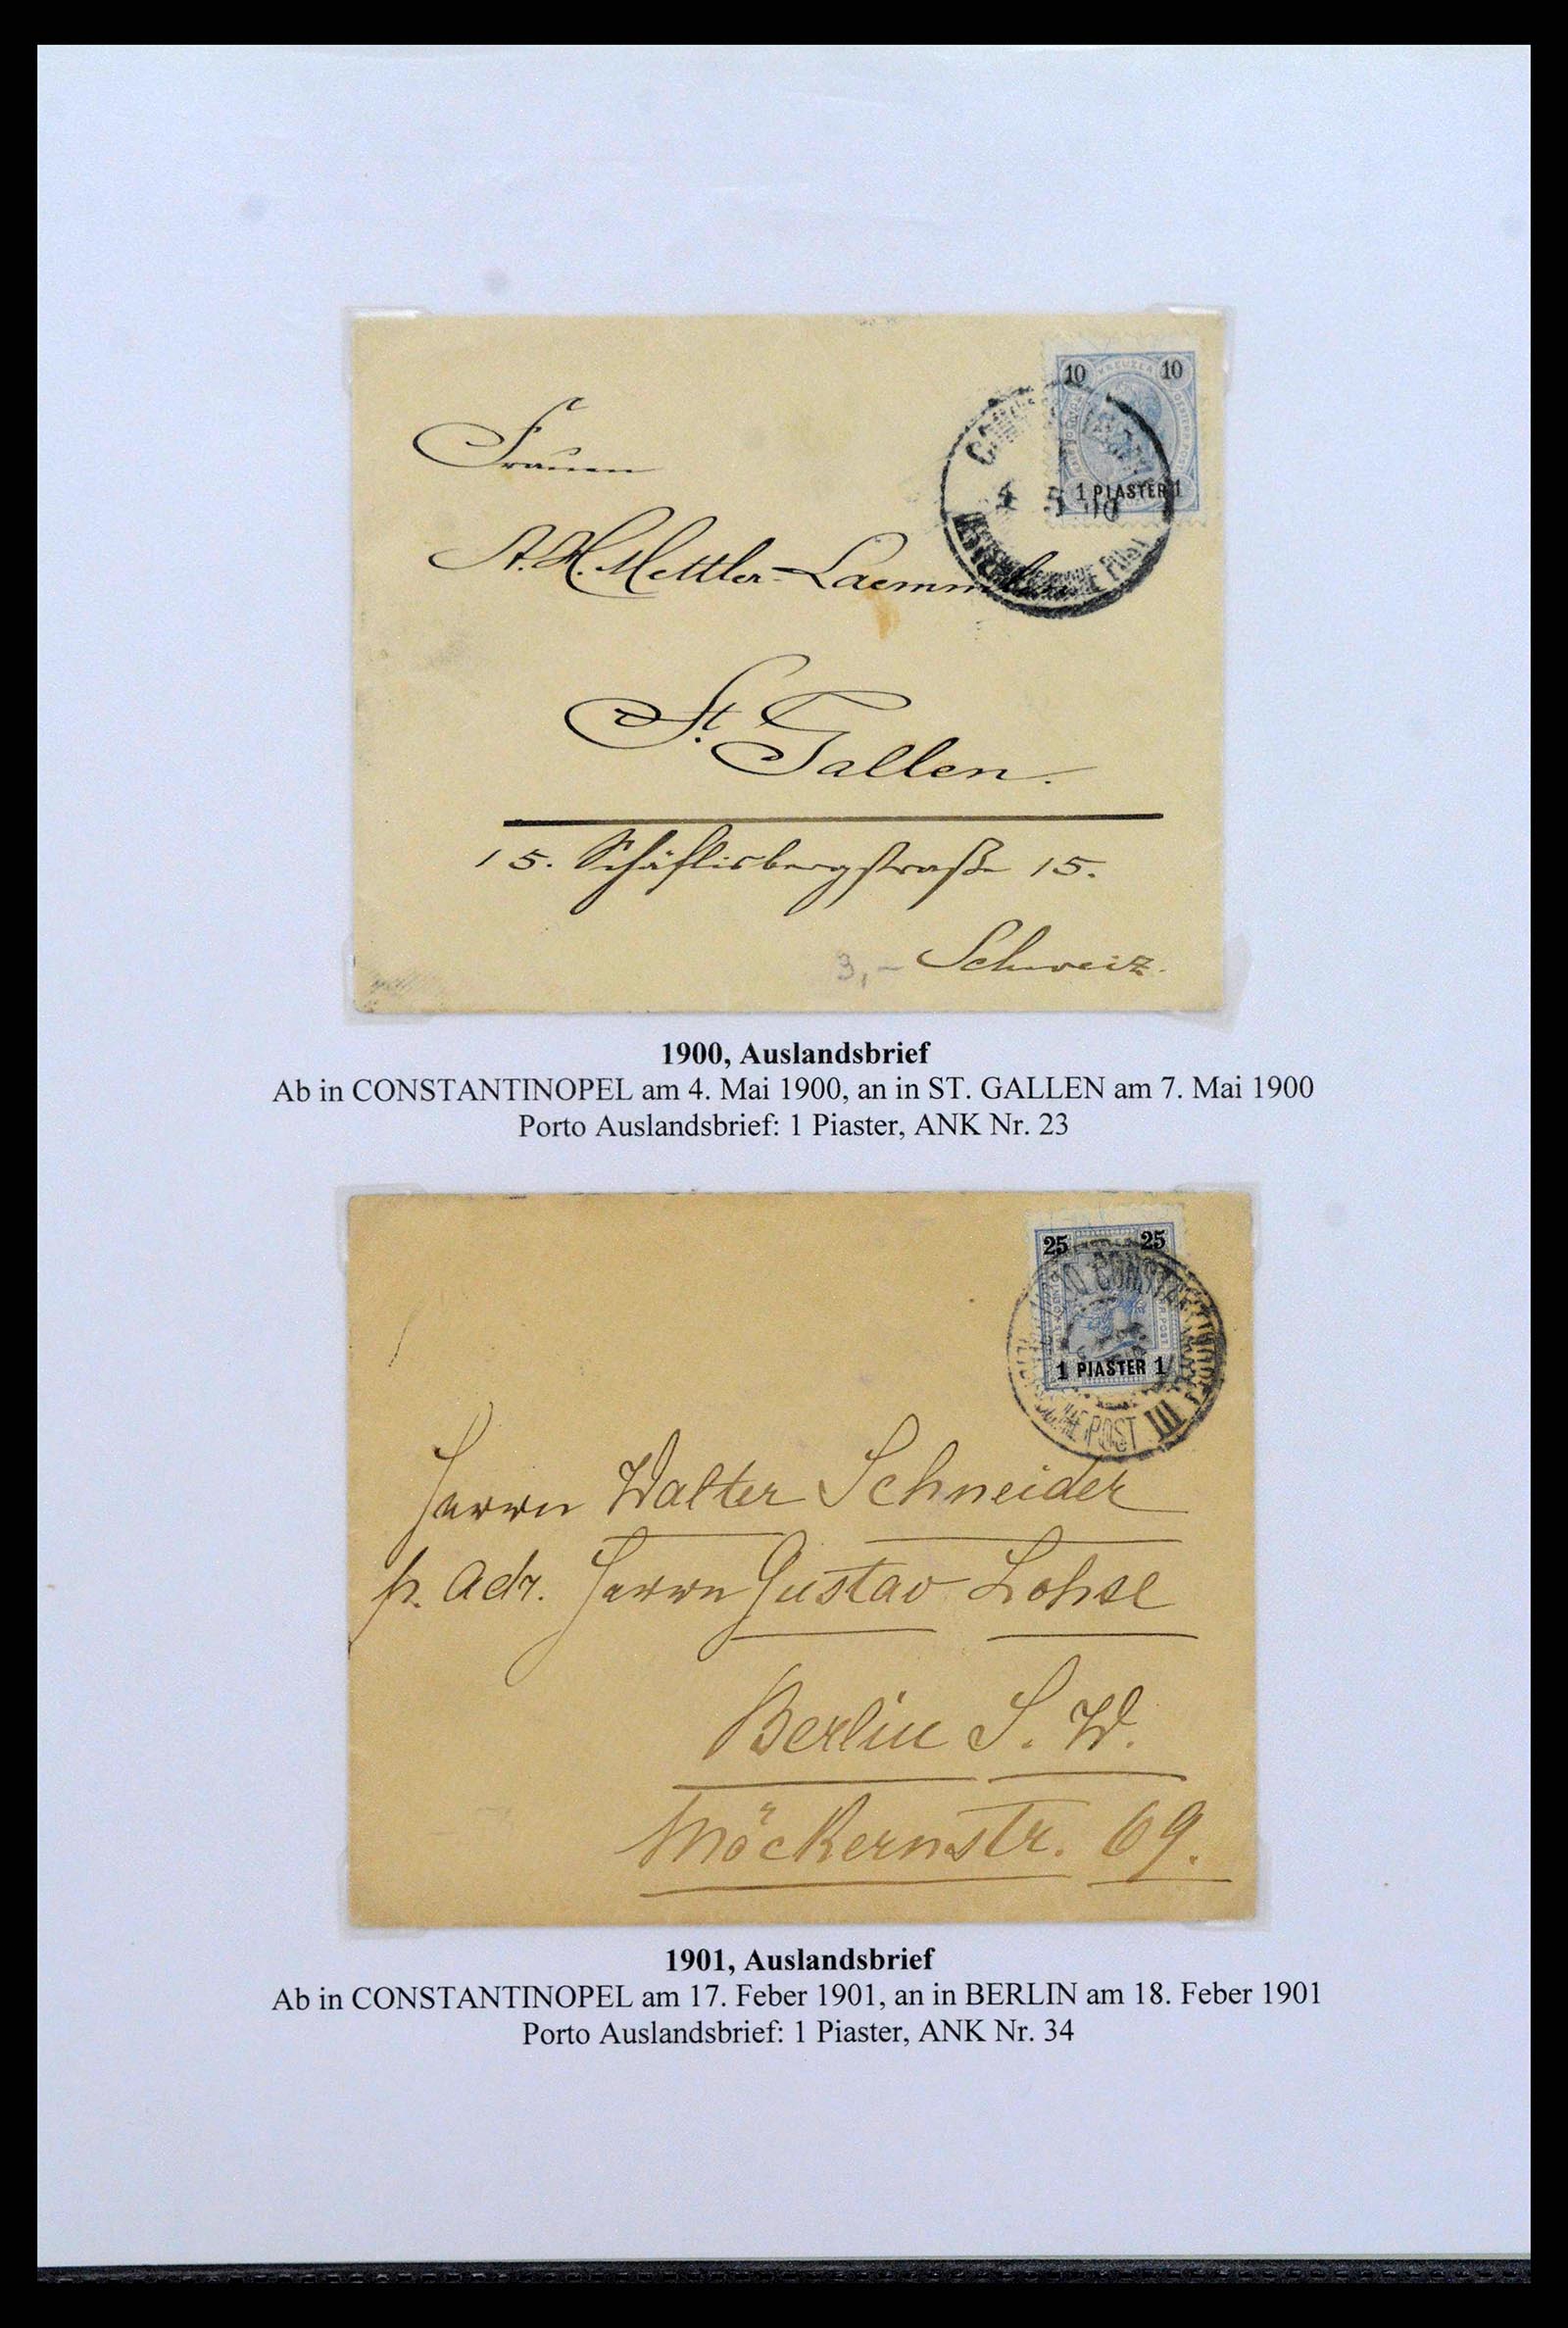 10 KREUZER 10
1 PIASTER 1
4 5 00
Frauen
A. H. Mettler-Laemmlin
St. Gallen.
15. Schäflisbergstraße 15.
3,- Schweiz.
1900, Auslandsbrief
Ab in CONSTANTINOPEL am 4. Mai 1900, an in ST. GALLEN am 7. Mai 1900
Porto Auslandsbrief: 1 Piaster, ANK Nr. 23
25 25
1 PIASTER 1
CONSTANTINOPEL
POST III
Herrn Walter Schneider
p. Adr. Herrn Gustav Lohse
Berlin S. W.
Möckernstr. 69.
1901, Auslandsbrief
Ab in CONSTANTINOPEL am 17. Feber 1901, an in BERLIN am 18. Feber 1901
Porto Auslandsbrief: 1 Piaster, ANK Nr. 34